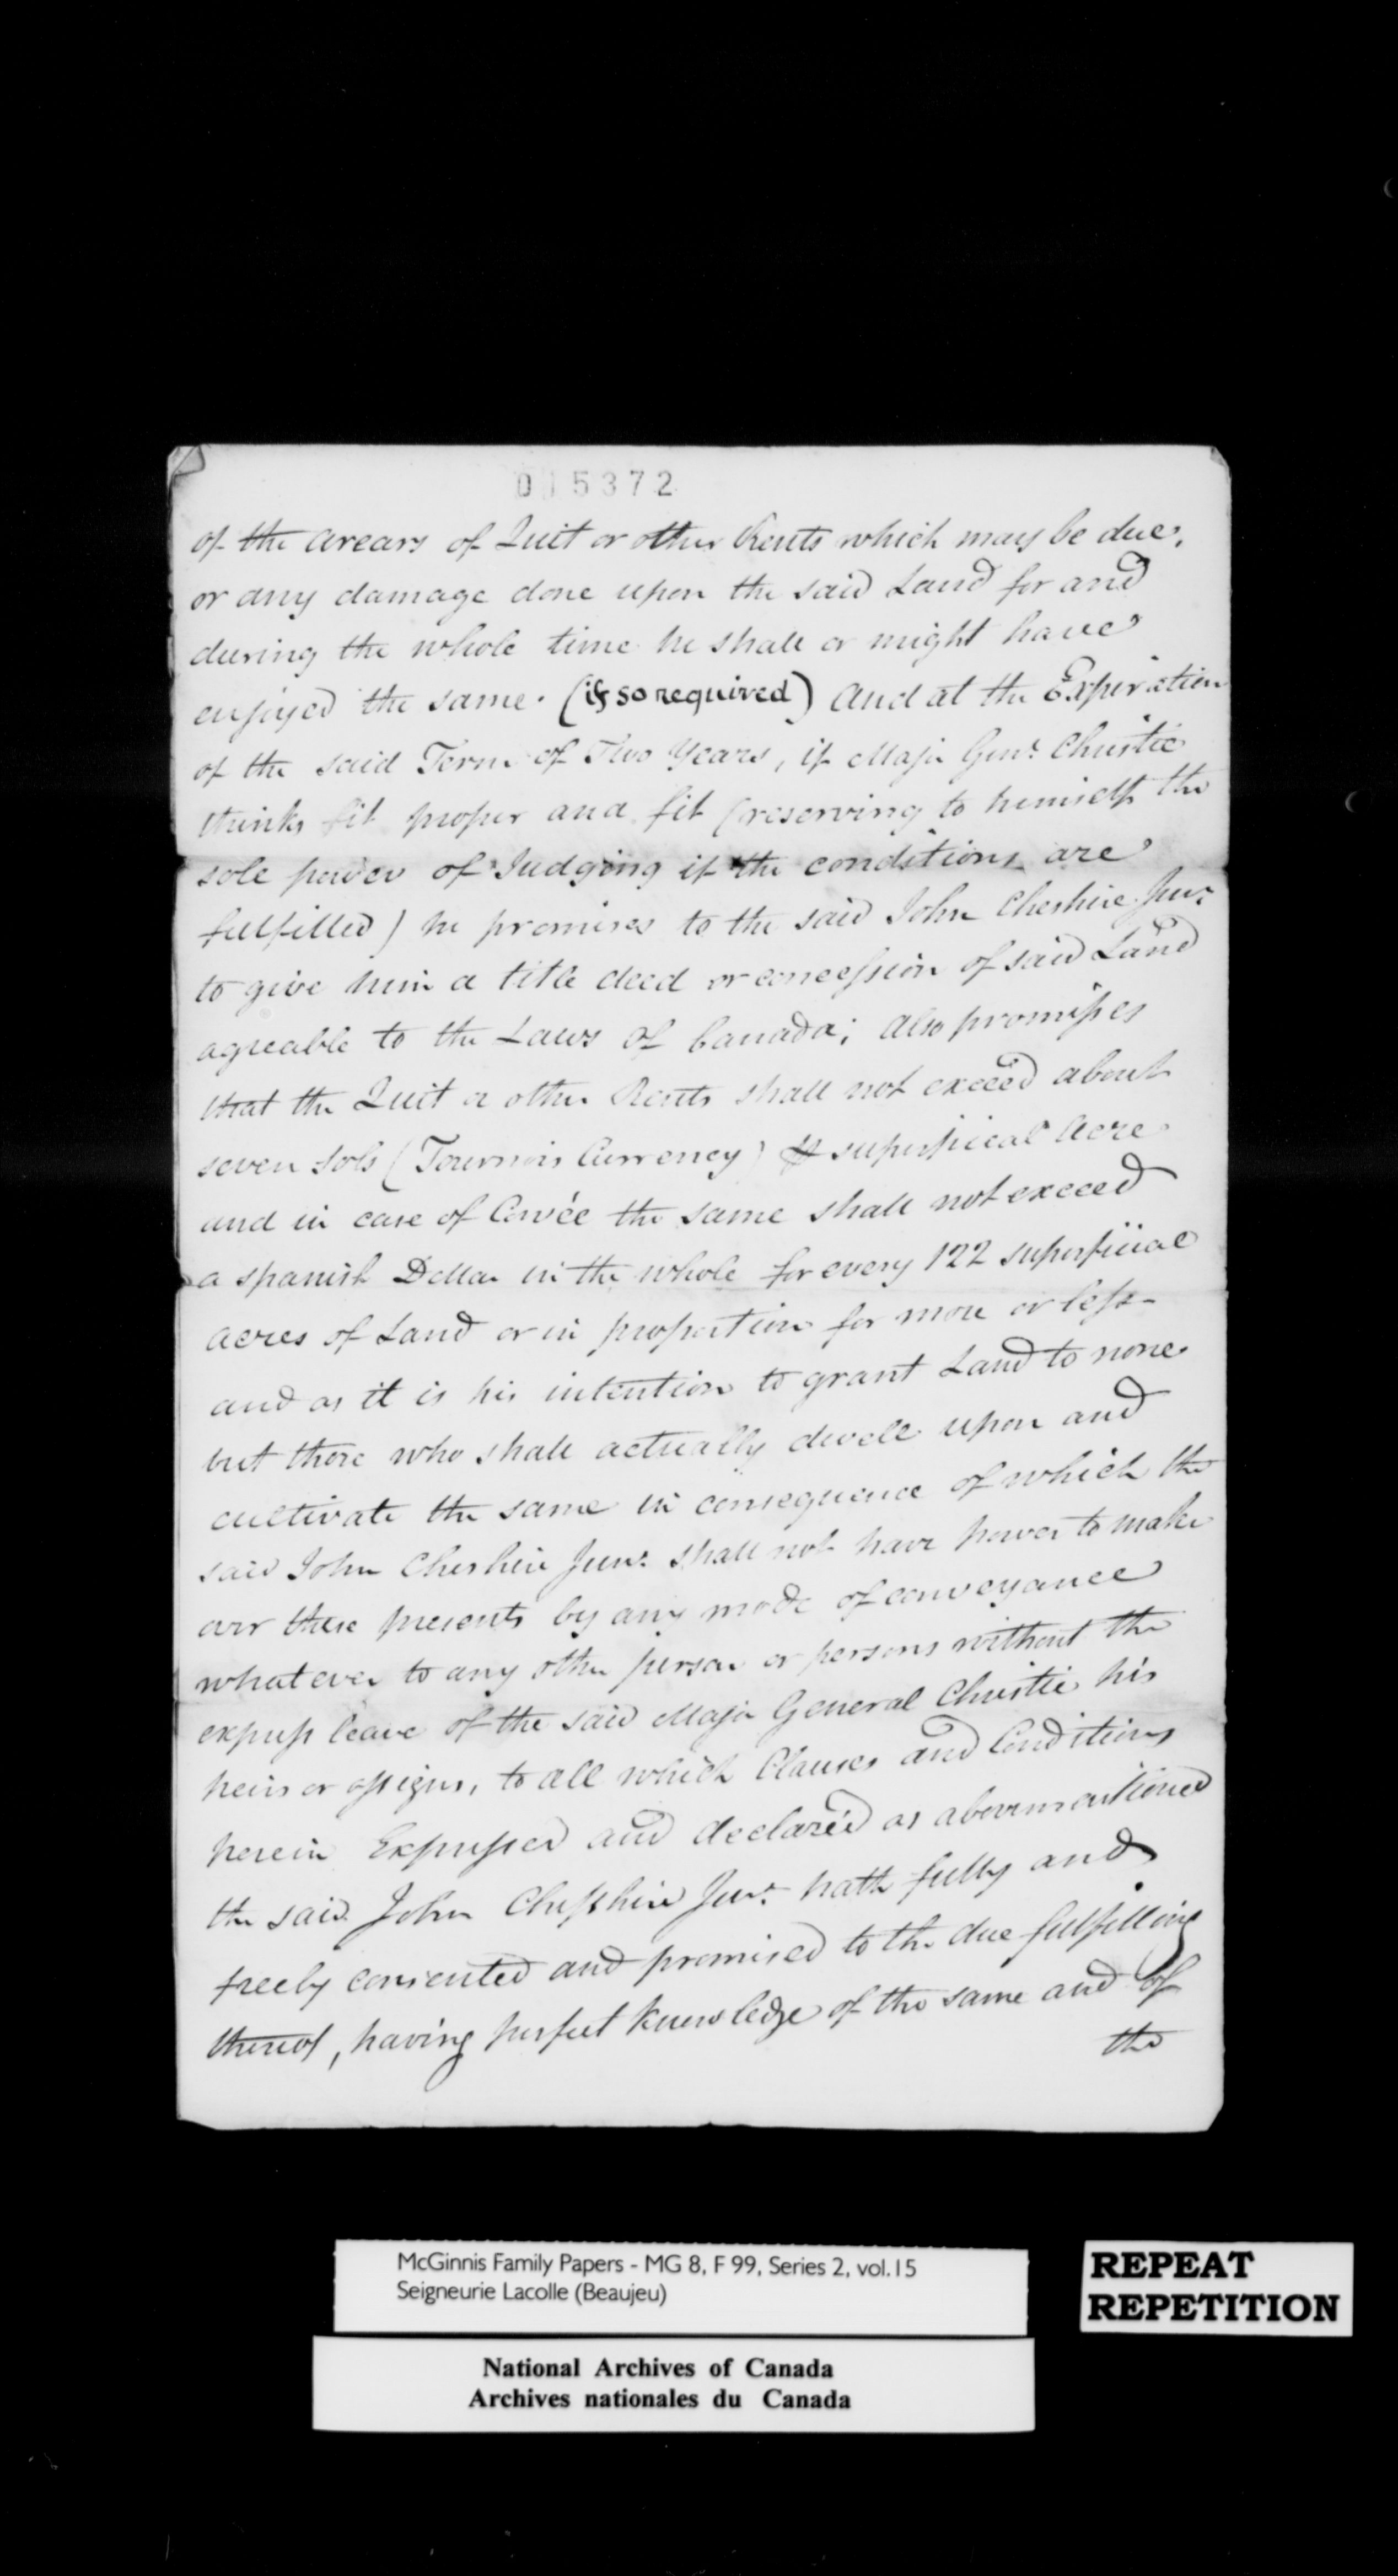 015372
of the arears of Quit or other Rents which may be due,
or any damage done upon the said Land for and
during the whole time he shall or might have
enjoyed the same. (if so required) And at the Expiration
of the said Term of Two Years, if Major Genl. Christie
thinks fit proper and fit (reserving to himself the
sole power of Judging if the conditions are
fulfilled) he promises to the said John Cheshire Junr
to give him a title deed or concession of said Land
agreable to the Laws of Canada; also promises
that the Quit or other Rents shall not exceed about
seven sols (Tournois Currency) ⅌ superficial Acre
and in case of Corvée the same shall not exceed
a spanish Dollar in the whole for every 122 superficial
acres of Land or in proportion for more or less-
and as it is his intention to grant Land to none
but those who shall actually dwell upon and
cultivate the same in consequence of which the
said John Cheshire Junr. shall not have power to make
over these presents by any mode of conveyance
whatever to any other person or persons without the
express leave of the said Major General Christie his
heirs or assigns, to all which Clauses and Conditions
herein Expressed and declared as abovementioned
the said John Chesshire Junr. hath fully and
freely consented and promised to the due fulfilling
thereof, having perfect knowledge of the same and of
the
McGinnis Family Papers - MG 8, F 99, Series 2, vol.15
Seigneurie Lacolle (Beaujeu)
REPEAT
REPETITION
National Archives of Canada
Archives nationales du Canada